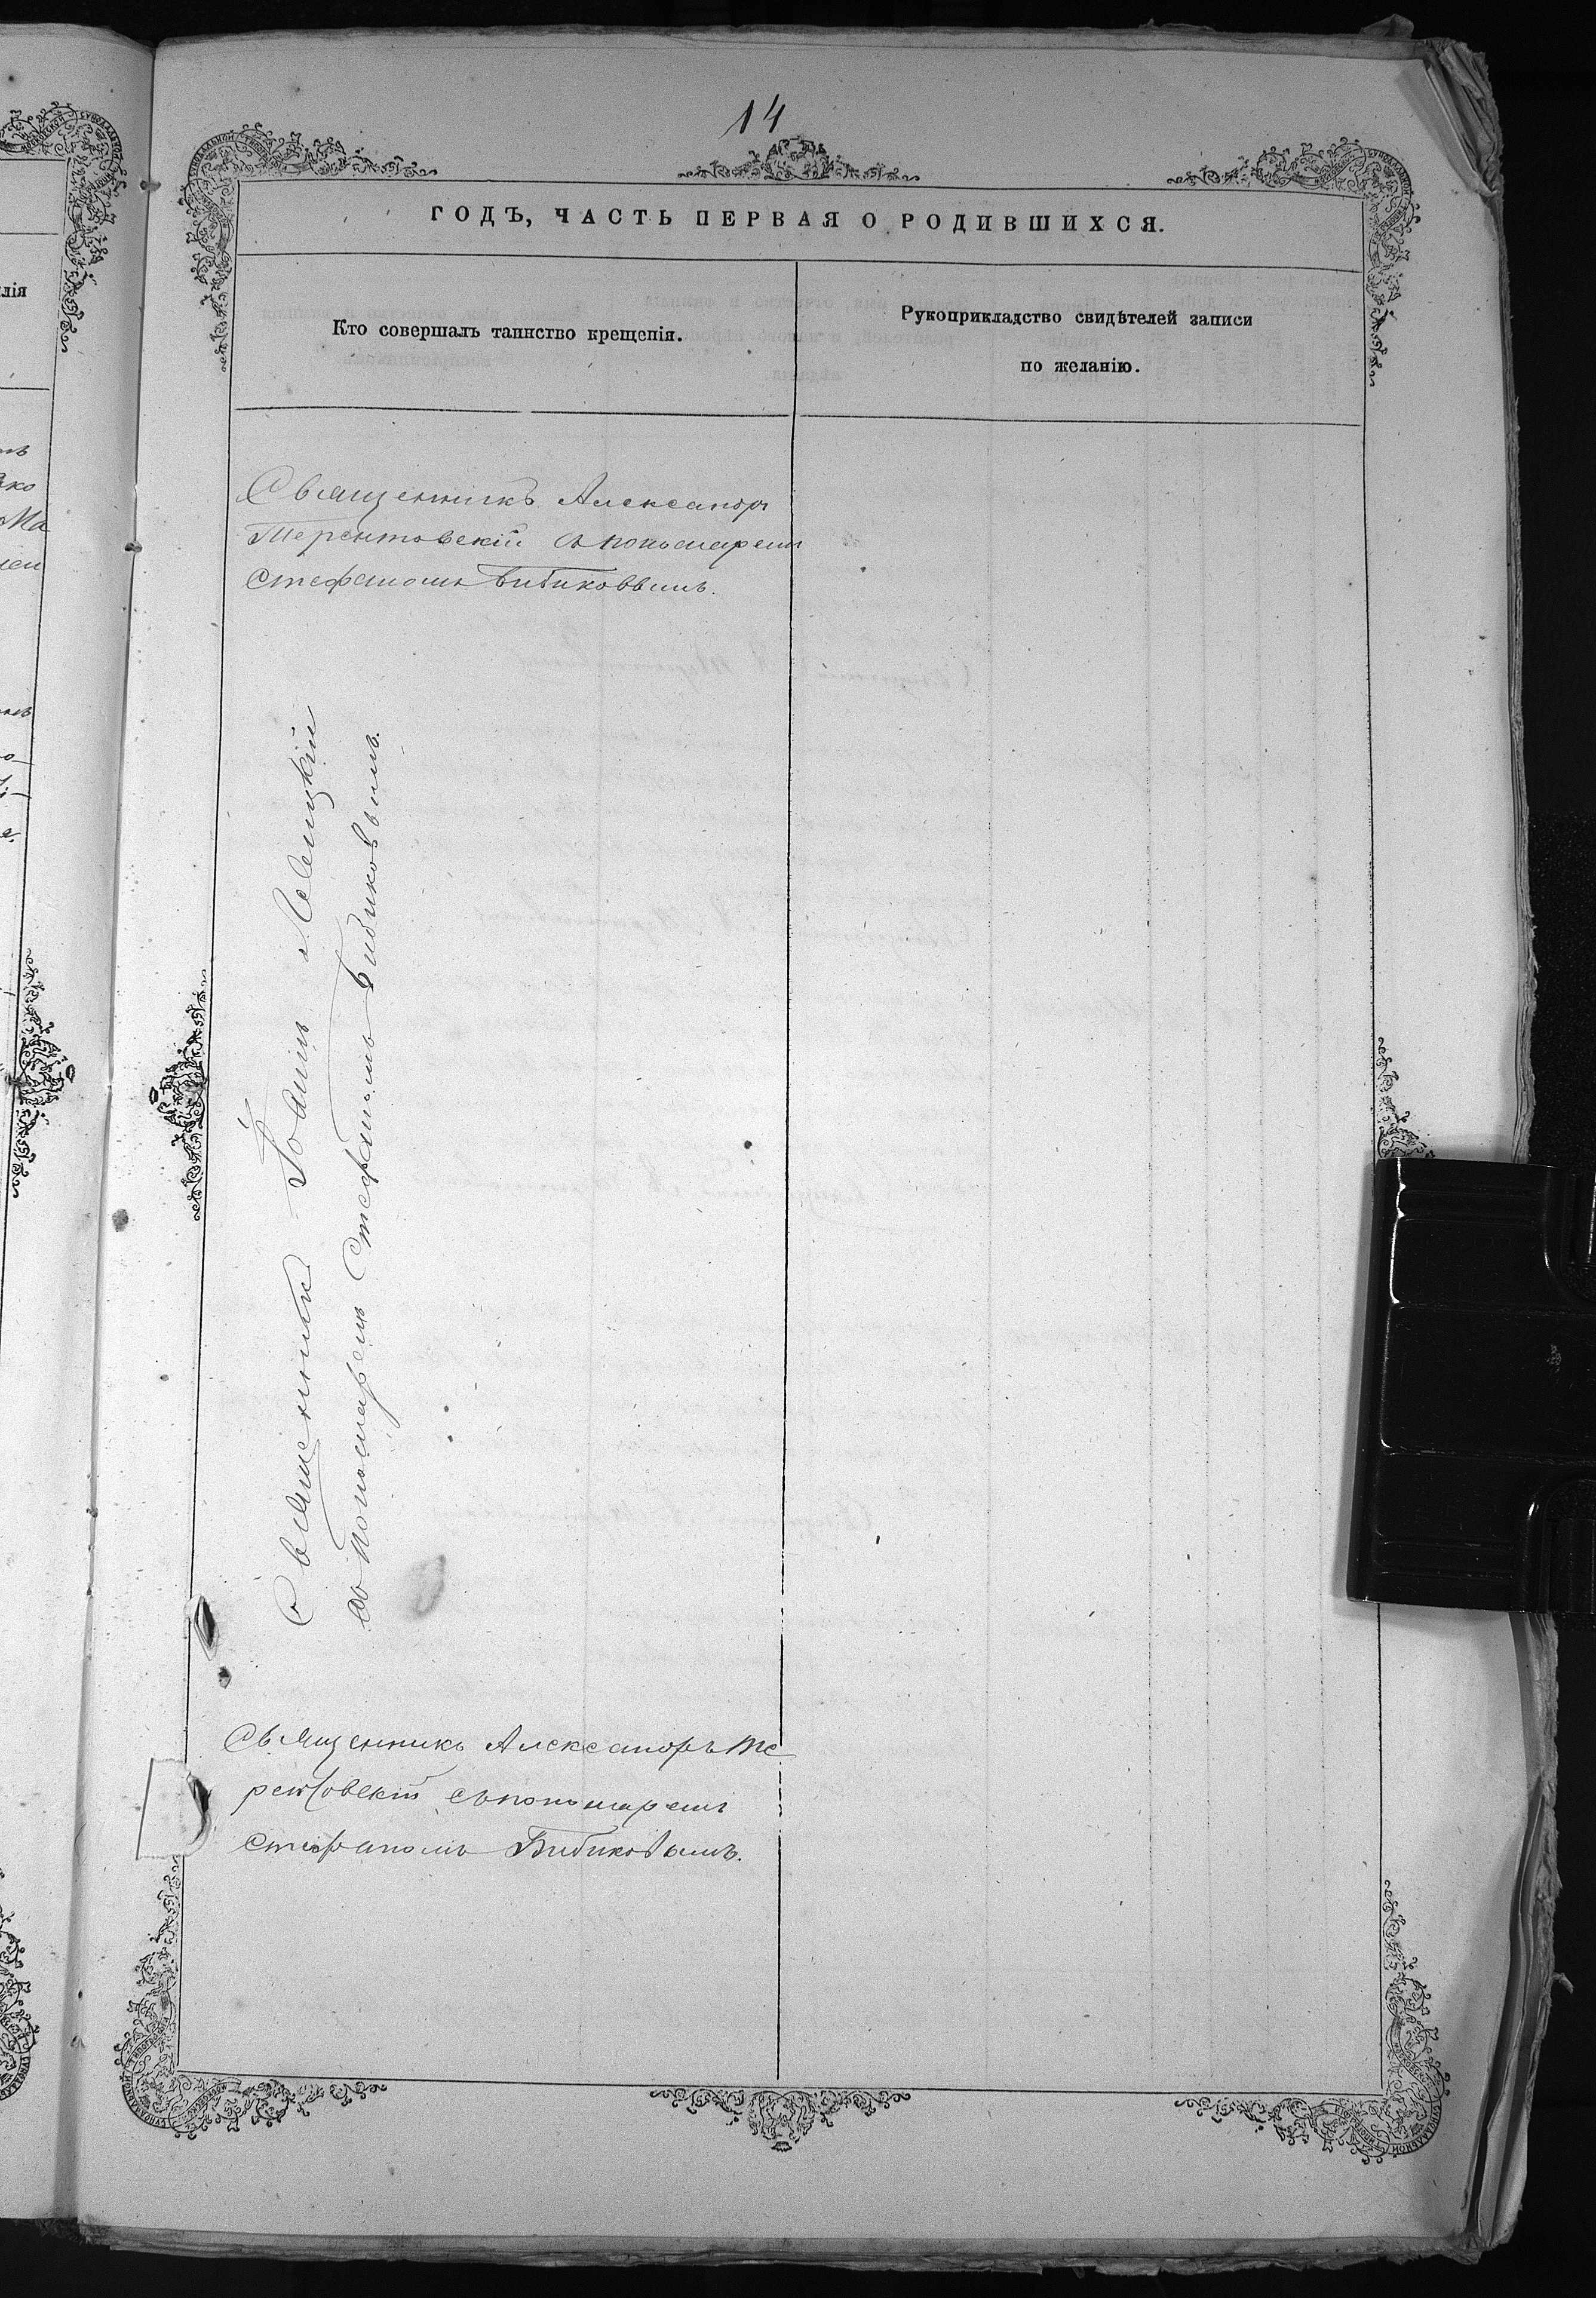 14
ГОДЪ, ЧАСТЬ ПЕРВАЯ О РОДИВШИХСЯ.
Кто совершалъ таинство крещенія.
Рукоприкладство свидѣтелей записи
по желанію.
Священникъ Александръ
Терентовскій съ пономаремъ
Стефаномъ Бибиковымъ.
Священникъ Іоаннъ Левицкій
съ пономаремъ Стефаномъ Бибиковымъ.
Священникъ Александръ Те
рентовскій съ пономаремъ
Стефаномъ Бибиковымъ.